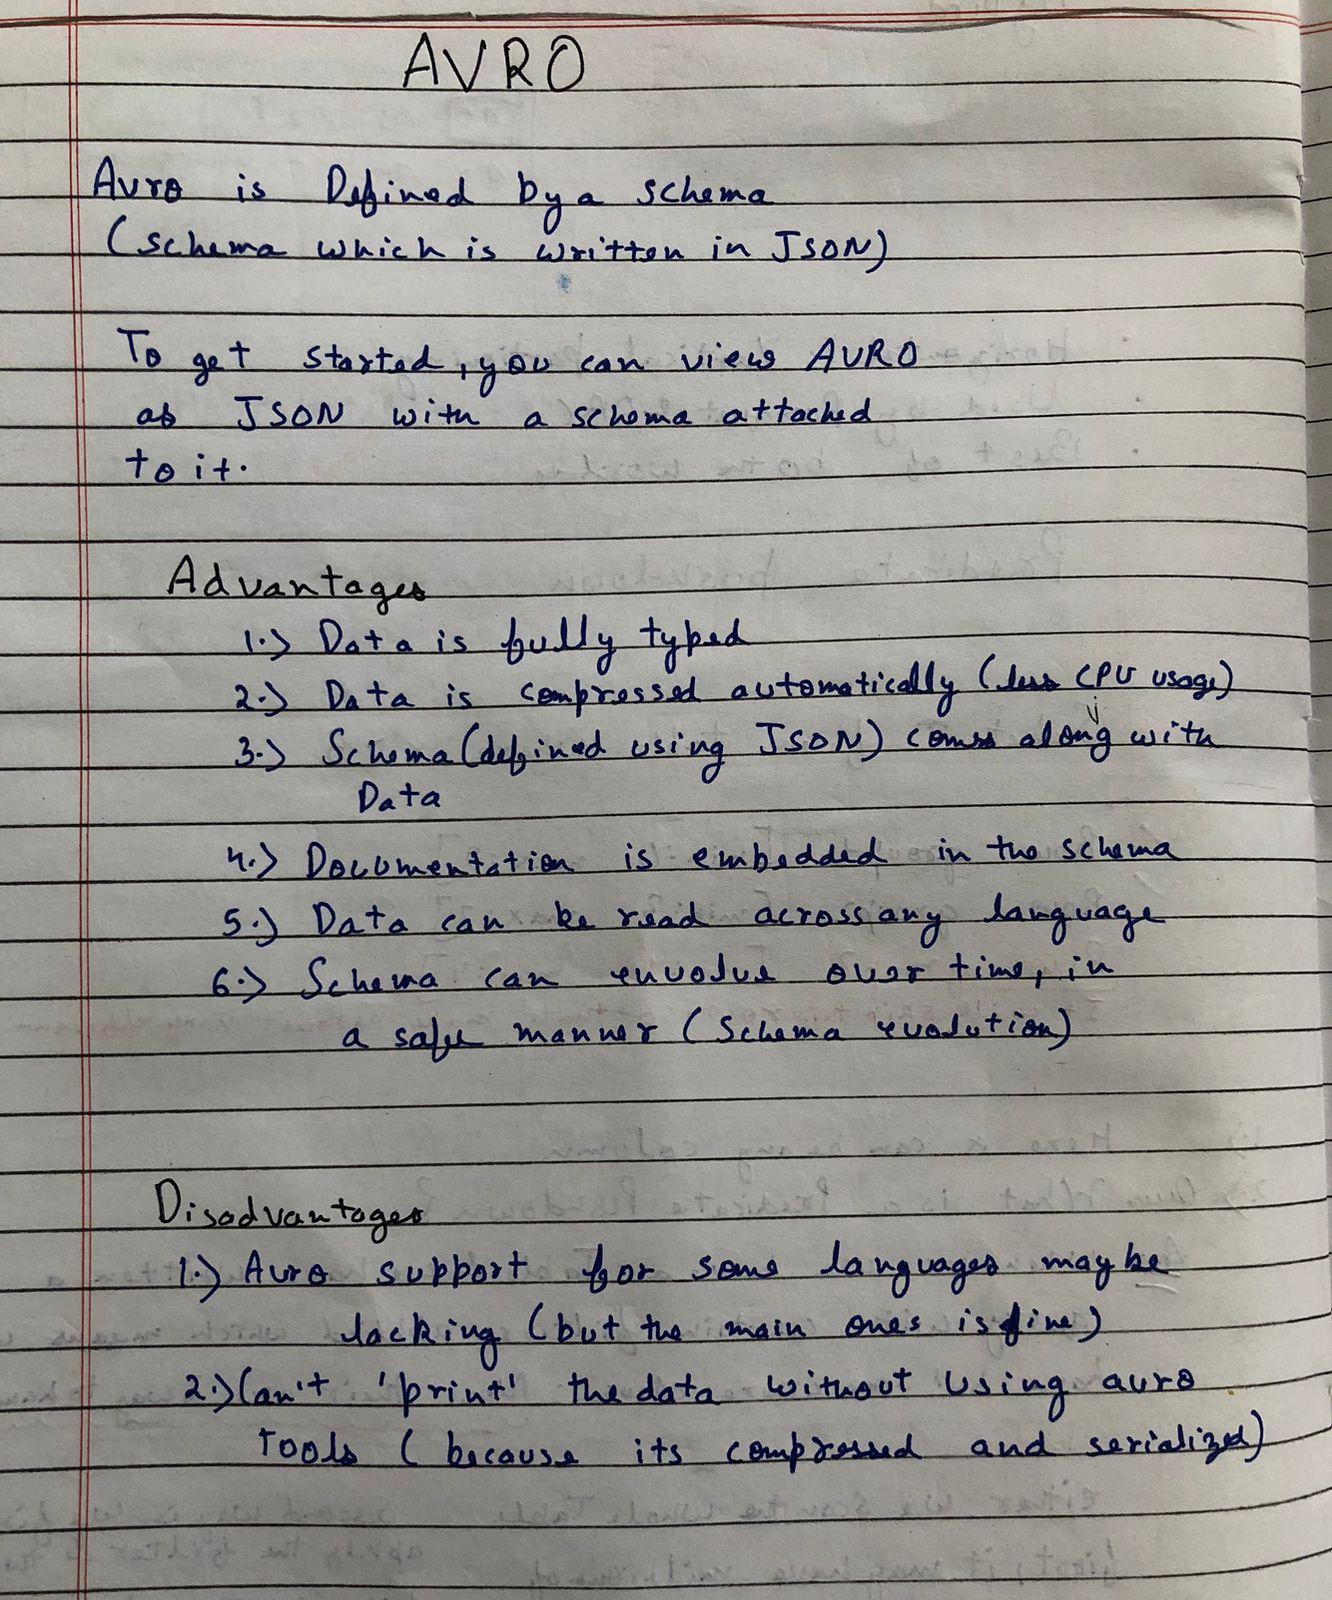 AVRO
Avro is Defined by a schema
(schema which is written in JSON)
To get started, you can view AVRO
as JSON with a schema attached
to it.
Advantages
1.) Data is fully typed
2.) Data is compressed automatically (less CPU usage)
3.) Schema (defined using JSON) comes along with
Data
4.) Documentation is embedded in the schema
5.) Data can be read across any language
6.) Schema can envolve over time, in
a safe manner (Schema evolution)
Disadvantages
1.) Avro support for some languages may be
lacking (but the main ones is fine)
2.) Can't 'print' the data without using avro
Tools (because its compressed and serialized)